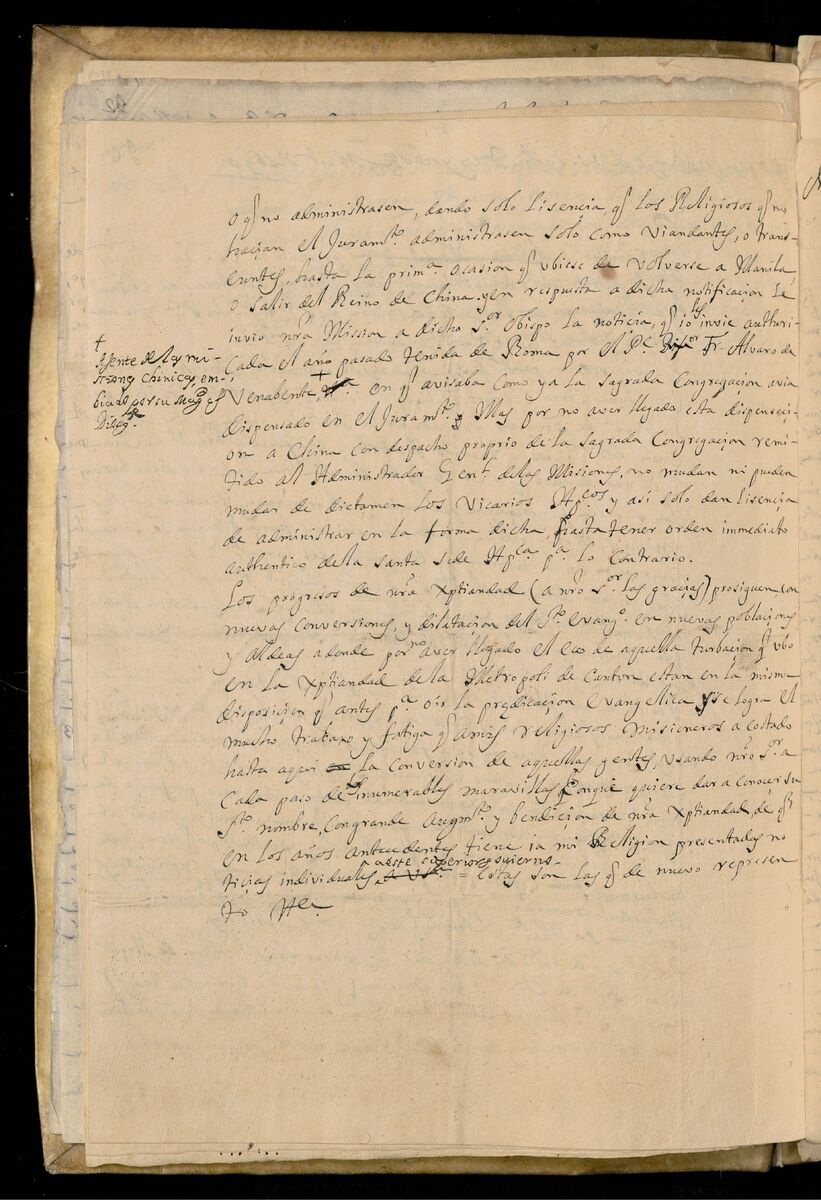 o q̃ no administrasen, dando solo lisencia, q̃ los Religiosos q̃ no
hacian el Juramto. administrasen solo como viandantes, o trans-
euntes, hasta la prima. ocasion q̃ ubiese de volverse a Manila,
o salir del Reino de China. y en respuesta a dicha notificacion le
invio nr̃a Mission a dicho sor. obispo la noticia, q̃ io les invie authori-
cada el año pasado tenida de Roma por el Pe. Fr. Alvaro de
Venabente, + en q̃ avisaba como ya la sagrada Congregacion avia
dispensado en el Juramto. Mas por no aver llegado esta dispensaci-
on a China con despacho proprio de la sagrada Congregacion remi-
tido al Administrador Genl. de las Misiones, no mudan ni pueden
mudar de dictamen los Vicarios Apcos. y asi solo dan lisencia
de administrar en la forma dicha, hasta tener orden immediato
authentico de la santa sede Apca. pa. lo contrario.
Los progresos de nr̃a Xptiandad (a nr̃o sor. las gracias) prosiguen con
nuevas conversiones, y dilatacion del sto. evango. en nuevas poblaciones
y aldeas adonde por no aver llegado el eco de aquella turbacion q̃ ubo
en la Xptiandad de la Metropoli de Canton, estan en la misma
disposicion q̃ antes pa. oir la predicacion evangelica y se logra el
mucho trabaxo y fatiga q̃ a mis religiosos misioneros a costado
hasta aqui la conversion de aquellas gentes, usando nr̃o sor. a
cada paso de inumerables maravillas con que quiere dar a conocer su
sto. nombre, con grande augmto. y bendicion de nr̃a Xptiandad, de q̃
en los años antecedentes tiene ia mi Religion presentadas no
ticias individuales a este superior govierno = estas son las q̃ de nuevo represen
to Ha.
+
Asente de las mi-
siones Chinicas, em-
biado por su Magd.